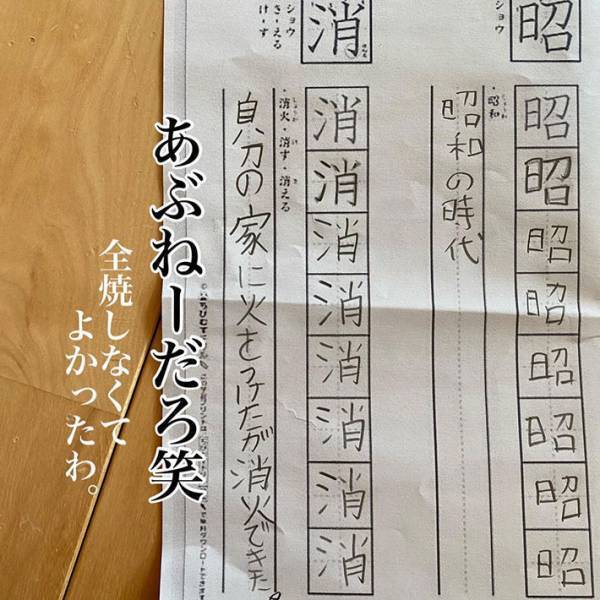 昭
ショウ
・昭和
しょうわ
昭
昭
昭
昭
昭
昭
昭
昭
昭和の時代
消
ショウ
さーえる
けーす
・消火・消す・消える
しょうか
け
き
消
消
消
消
消
消
消
消
自分の家に火をつけたが消火できた。
あぶねーだろ笑
全焼しなくて
よかったわ。